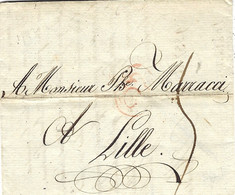 A Monsieur Ph Marracci
A
Lille.